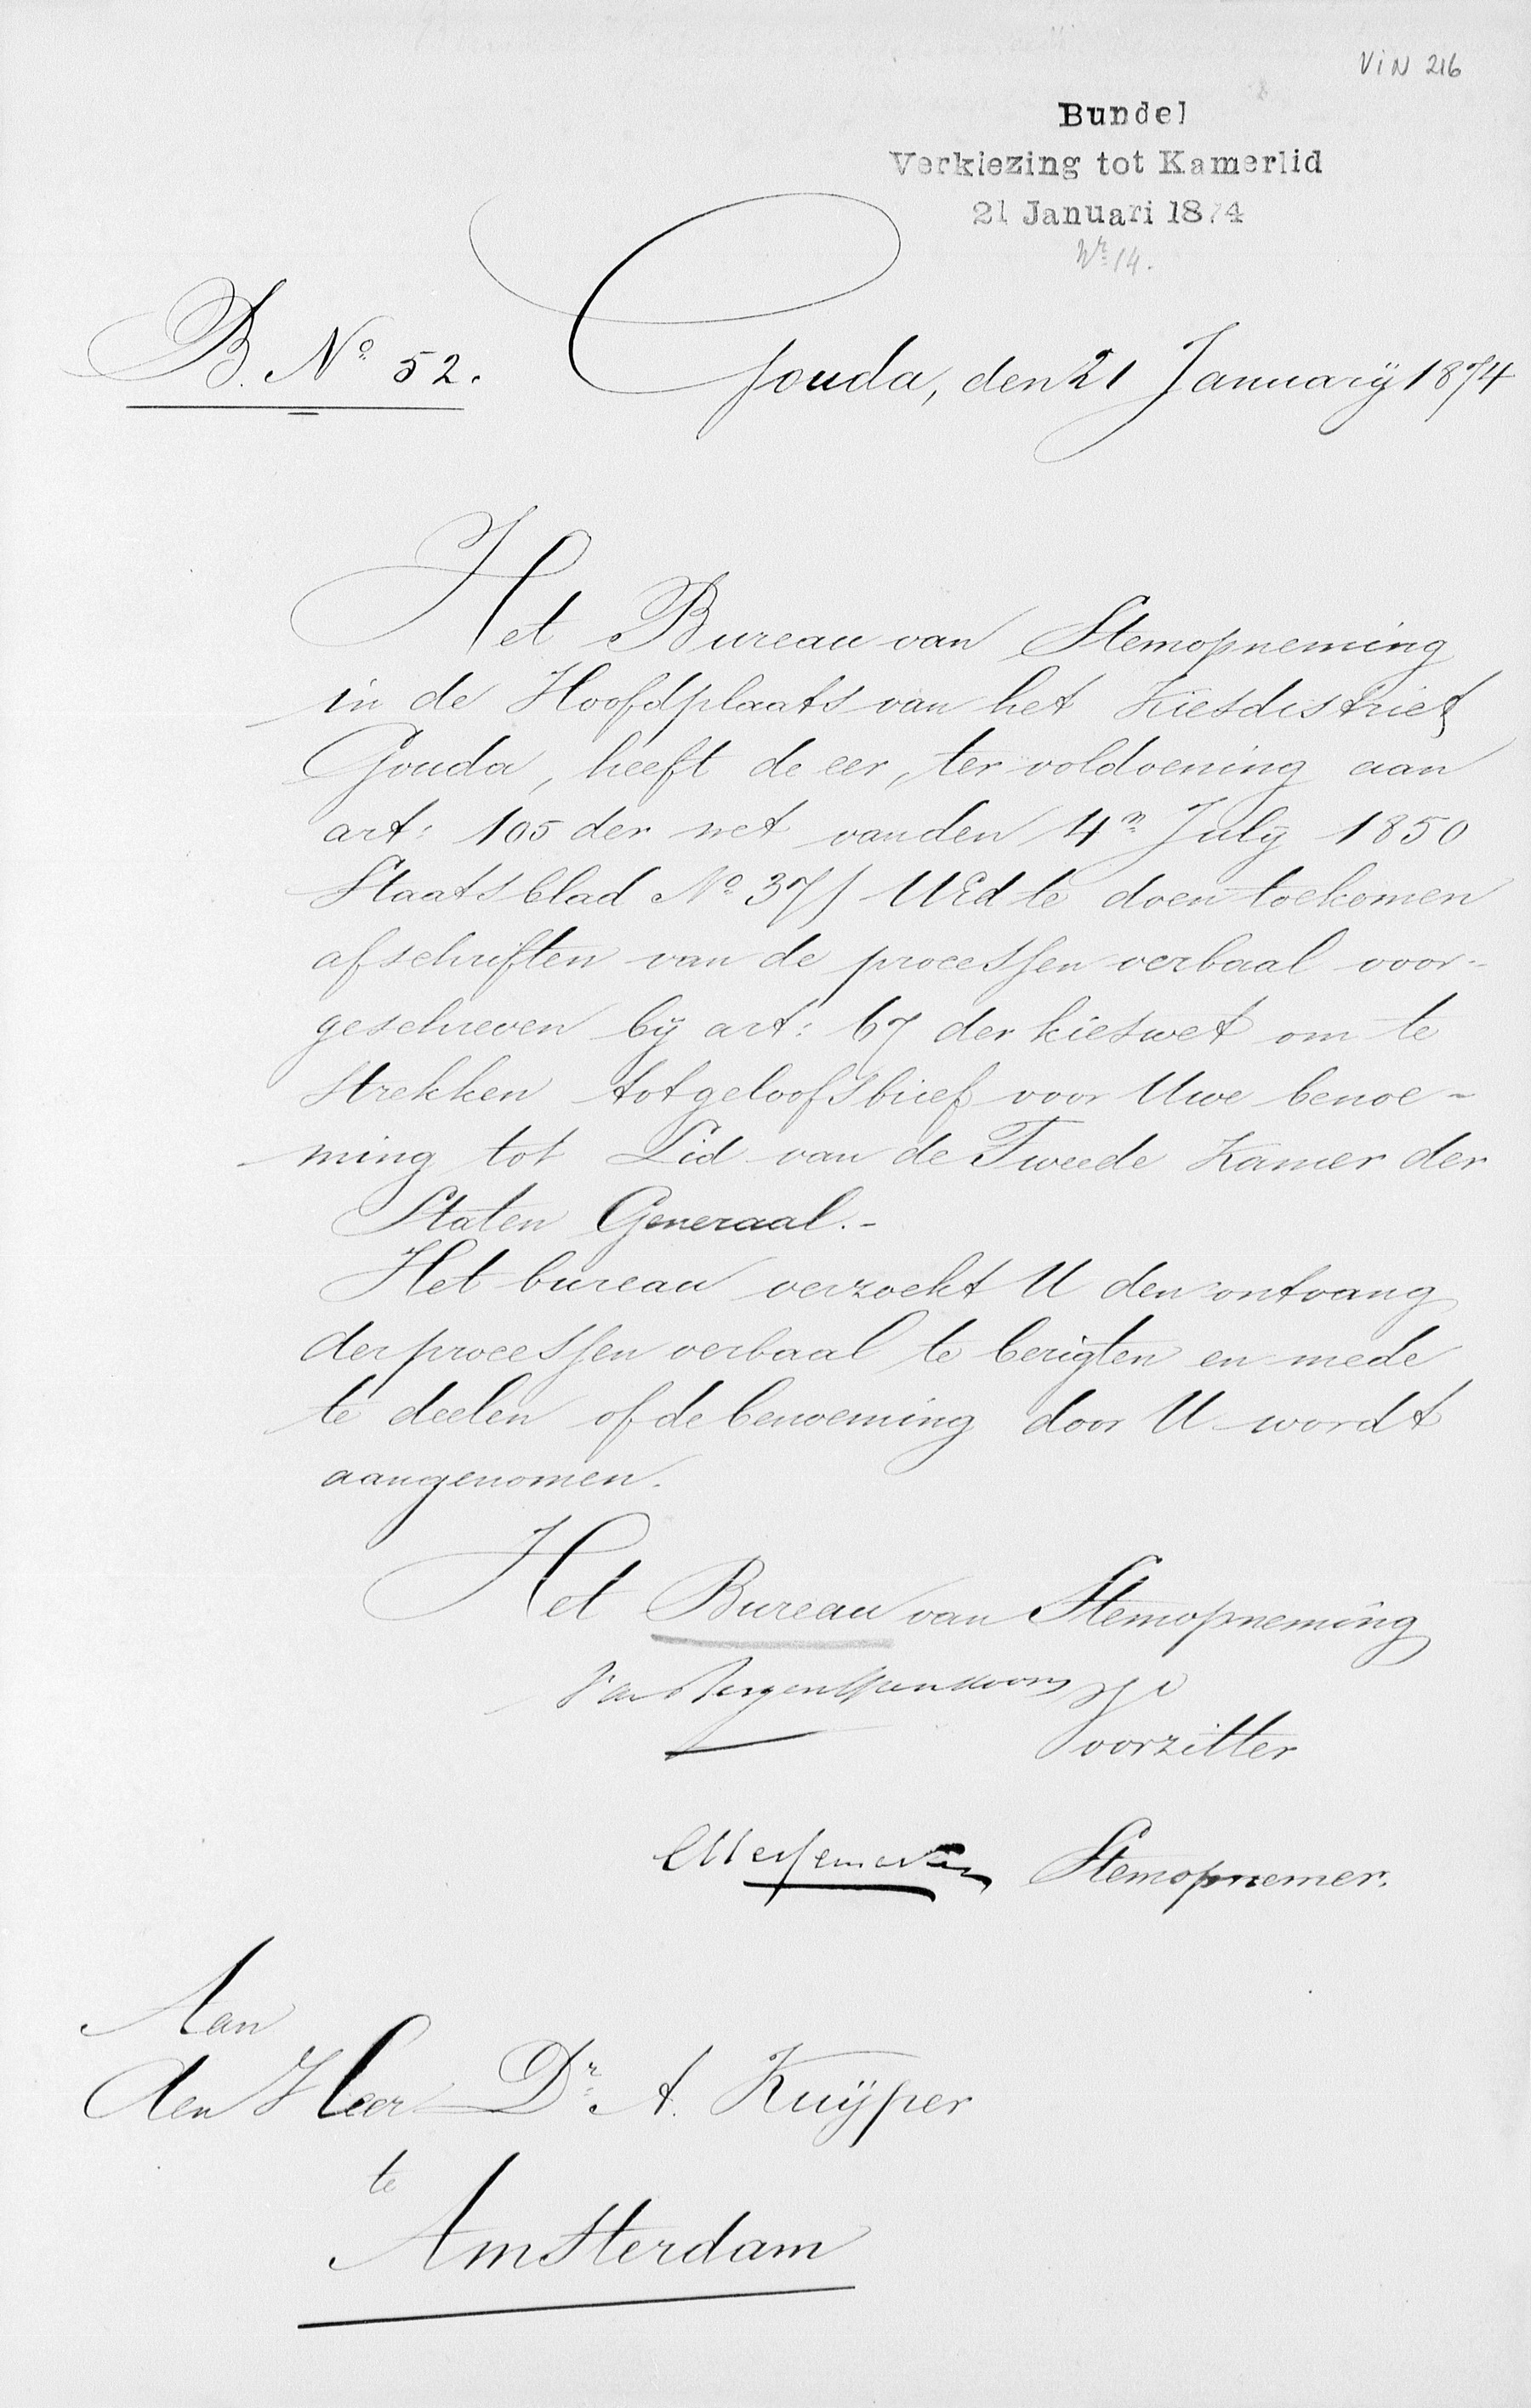 ViN 216
Bundel
Verkiezing tot Kamerlid
21 Januari 1874
Nr 14.
B. No 52.
Gouda, den 21 Januarij 1874
Het Bureau van Stemopneming
in de Hoofdplaats van het Kiesdistrict
Gouda, heeft de eer, ter voldoening aan
art: 105 der wet van den 4n July 1850
Staatsblad No 37/ UEd te doen toekomen
afschriften van de processen verbaal voor-
geschreven bij art: 67 der kieswet om te
strekken tot geloofsbrief voor Uwe benoe-
ming tot Lid van de Tweede Kamer der
Staten Generaal.-
Het bureau verzoekt U den ontvang
der processen verbaal te berigten en mede
te deelen of de benoeming door U wordt
aangenomen.
Het Bureau van Stemopneming
Van Bergen IJzendoorn
Voorzitter
Stemopnemer.
Aan
den Heer Dr A. Kuijper
te
Amsterdam